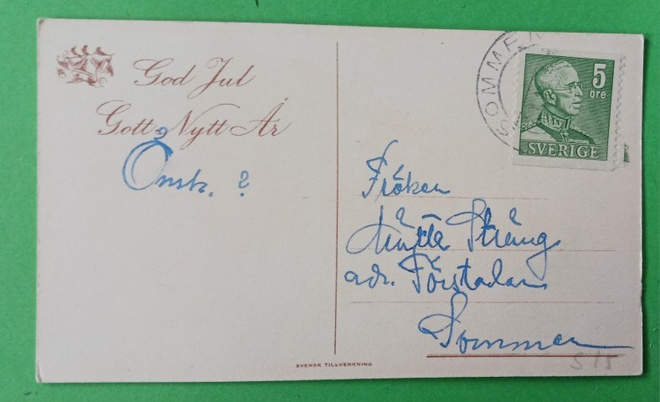 God Jul
Gott Nytt År
Önsk. ?
SOMMEN
5
öre
SVERIGE
Fröken
Märta Sträng
adr. Förstadan
Sommen
SVENSK TILLVERKNING
S 15